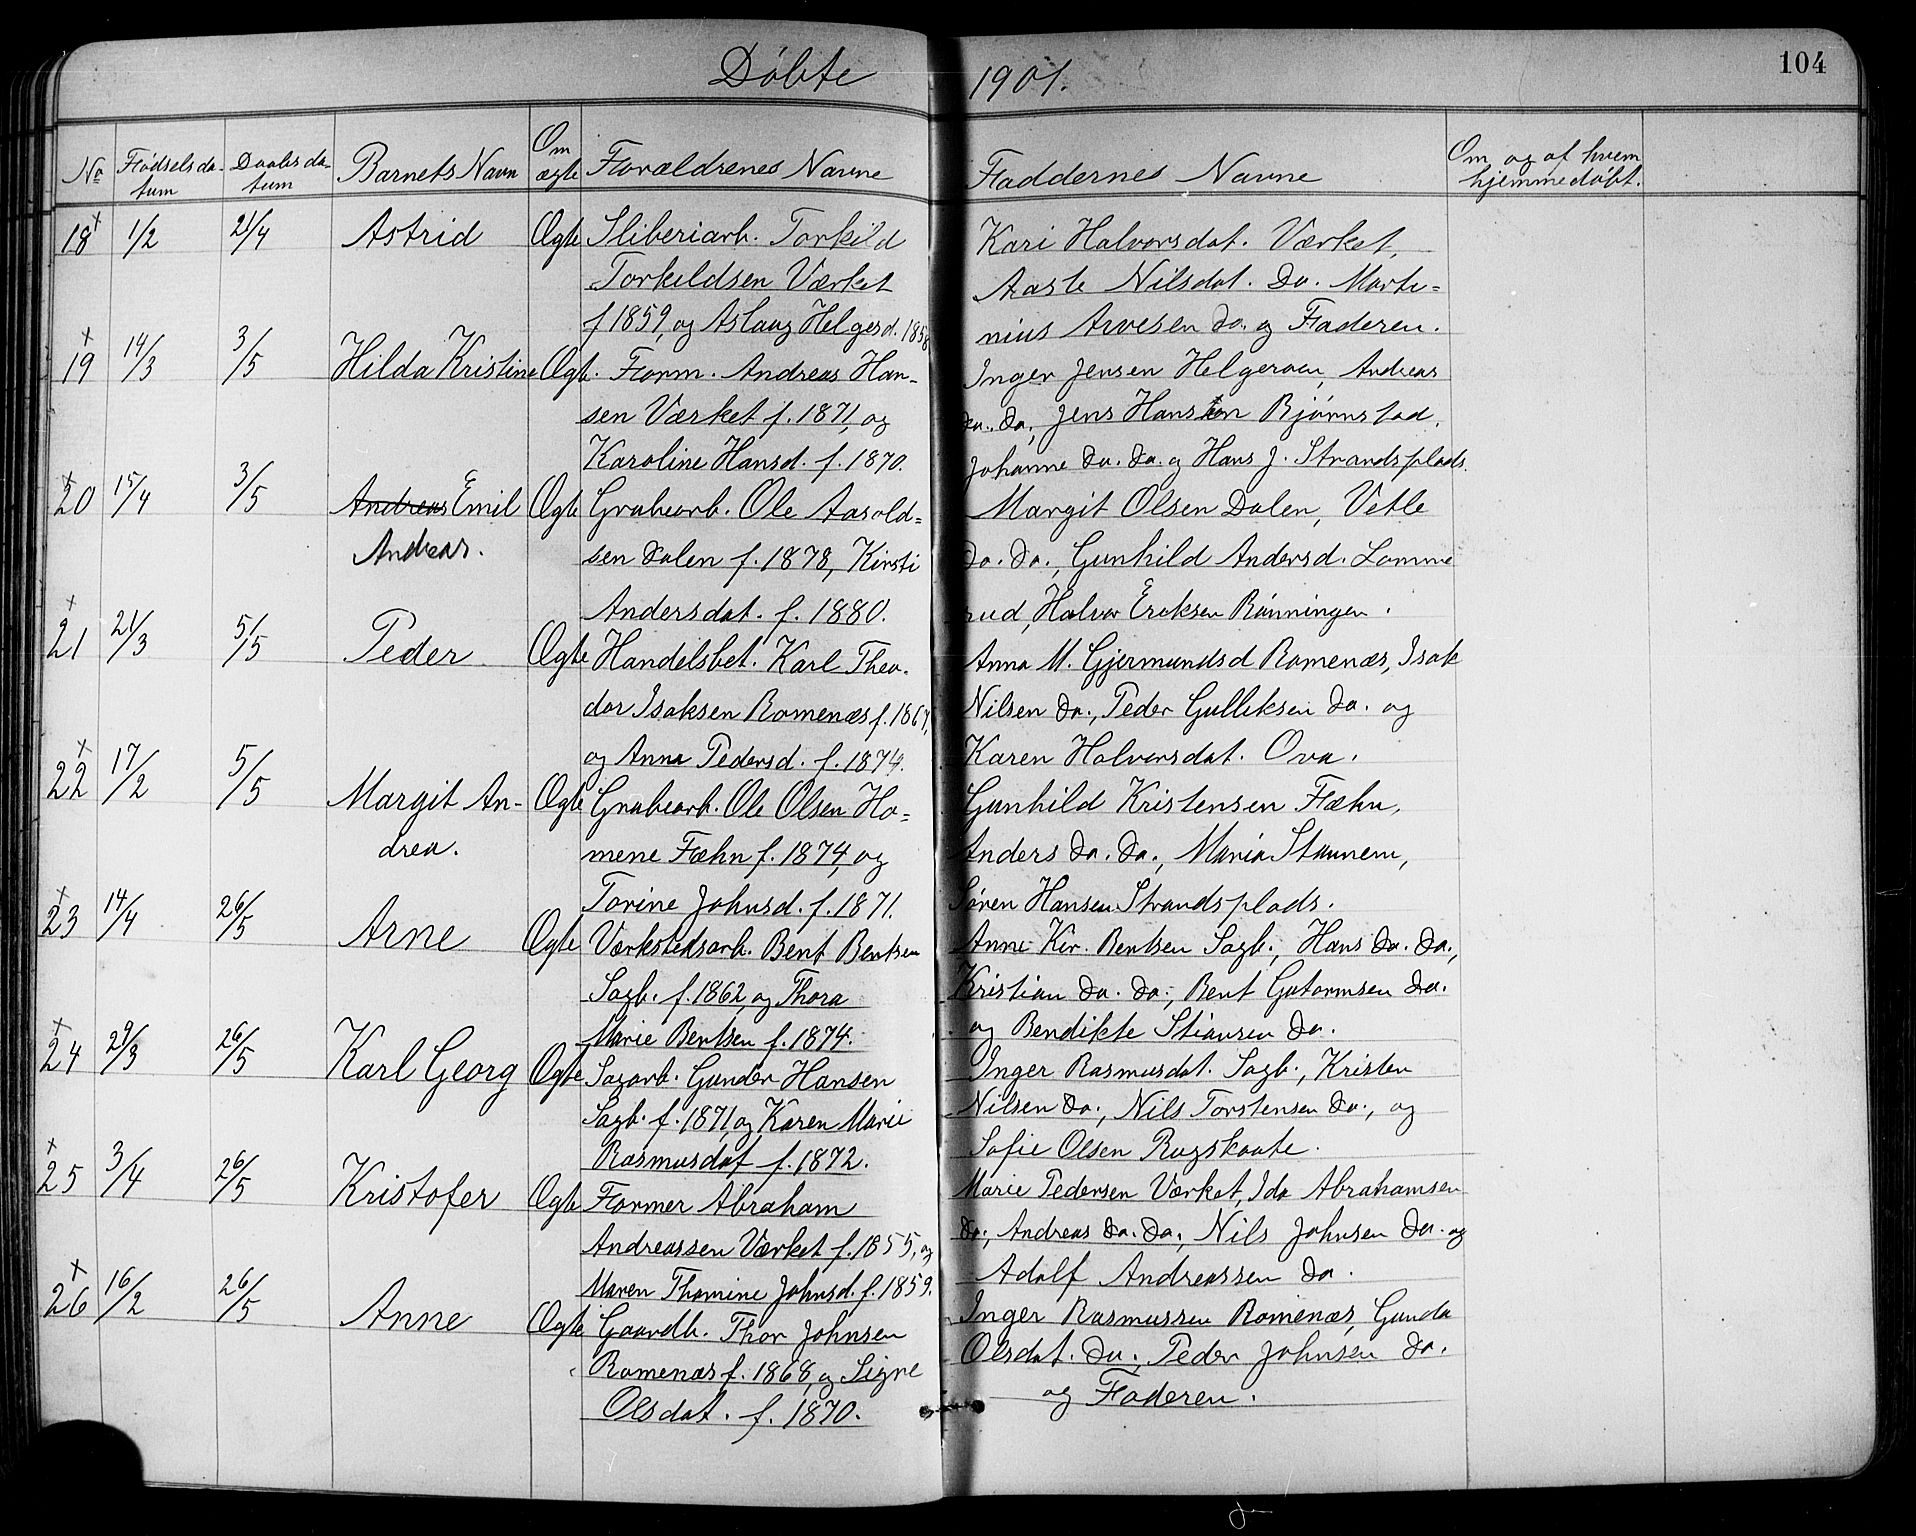 Døbte 1901. 104
No Fødselsda- Daabsda- Barnets Navn Om Forældrenes Navne Faddernes Navne Om og af hvem
tum tum ægte hjemmedøbt.
18 1/2 21/4 Astrid Ægte Sliberiarb. Torkild Kari Halvorsdat. Værket,
Torkildsen Værket Aaste Nilsdat. Do. Marti=
f 1859, og Aslaug Helgesd. 1858 nius Arvesen do. og Faderen.
19 14/3 3/5 Hilda Kristine Ægt. Form. Andreas Han- Inger Jensen Helgeroen, Andreas
sen Værket f. 1871, og do. do., Jens Hansen Bjørnstad,
Karoline Hansd. f. 1870. Johanne do. do. og Hans J. Strandsplads.
20 15/4 3/5 Andreas Emil Ægte Grubearb. Ole Aasold= Margit Olsen Dalen, Vetle
Andreas. sen Dalen f. 1878, Kirsti do. do., Gunhild Andersd. Lomme
Andersdat. f. 1880. rud, Halvor Eriksen Rønningen.
21 21/3 5/5 Peder Ægte Handelsbet. Karl Theo- Anna M. Gjermundsd Romenæs, Isak
dor Isaksen Romenæs f. 1867, Nilsen do., Peder Gulliksen do. og
og Anna Pedersd. f. 1874. Karen Halvorsdat. Ova.
22 17/2 5/5 Margit An- Ægte Grubearb. Ole Olsen Ho= Gunhild Kristensen Fæhn,
drea. mene Fæhn f. 1874, og Anders do. do., Maria Staunem,
Torine Johnsd. f. 1871. Søren Hansen Strandsplads.
23 14/4 26/5 Arne Ægte Værkstedsarb. Bent Bentsen Anne Kir. Bentsen Sagb., Hans do. do.,
Sagb. f. 1862, og Thora Kristian do. do., Bent Gutormsen do.
Marie Bentsen f. 1874. og Bendikte Stiansen do.
24 29/3 26/5 Karl Georg Ægte Sagarb. Gunder Hansen Inger Rasmusdat. Sagb., Kristen
Sagb. f. 1871, og Karen Marie Nilsen do., Nils Torstensen do., og
Rasmusdat f. 1872. Sofie Olsen Rugskaate.
25 3/4 26/5 Kristofer Ægte Former Abraham Marie Pedersen Værket, Ida Abrahamsen
Andreassen Værket f. 1855, og do., Andreas do. do., Nils Johnsen do. og
Maren Thomine Johnsd. f. 1859. Adolf Andreassen do.
26 16/2 26/5 Anne Ægte Gaardb. Thor Johnsen Inger Rasmussen Romenæs, Gunda
Romenæs f. 1868, og Signe Olsdat. do., Peder Johnsen do.
Olsdat. f. 1870. og Faderen.